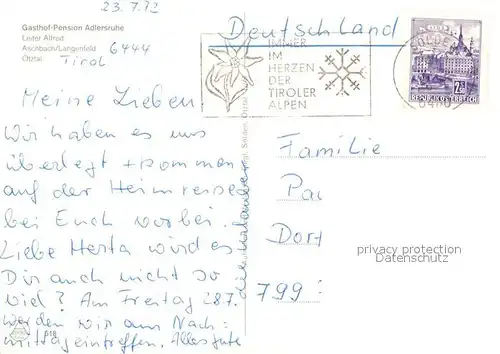 23.7.72
Gasthof-Pension Adlersruhe
Leiter Alfred
Aschbach/Langenfeld 6444
Ötztal Tirol
Deutschland
IMMER
IM
HERZEN
DER
TIROLER
ALPEN
2.50
REPUBLIK ÖSTERREICH
Meine Lieben
Wir haben es uns
überlegt + kommen
auf der Heimreise
bei Euch vorbei.
Liebe Herta wird es
Dir auch nicht so
viel? Am Freitag 28.7.
werden wir am Nach-
mittag eintreffen. Alles gute
Familie
Pa
Dorf
799
privacy protection
Datenschutz